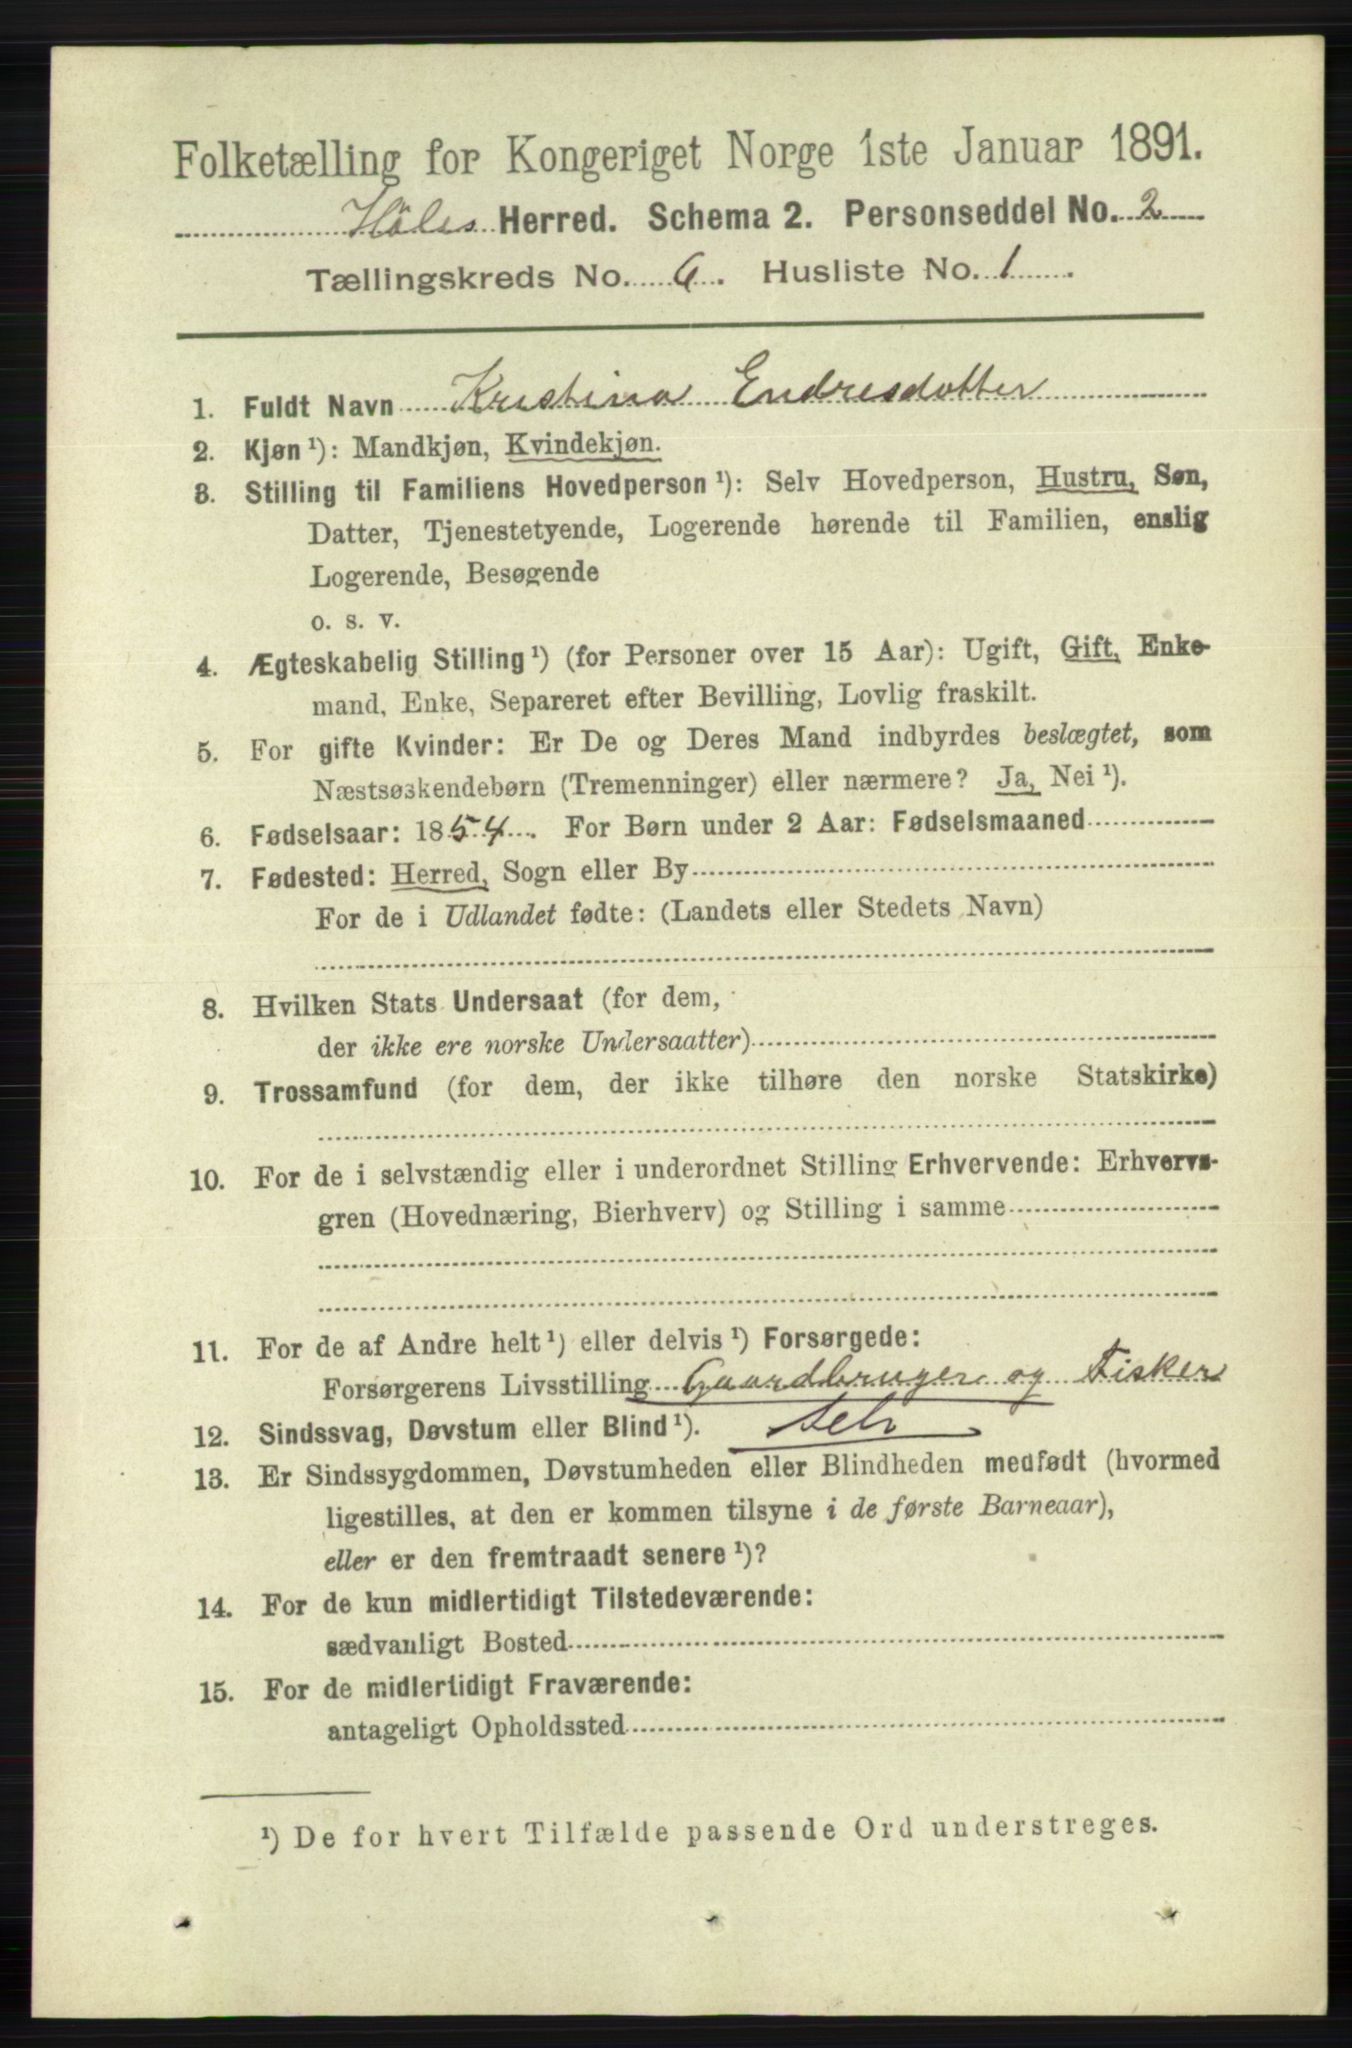 Folketælling for Kongeriget Norge 1ste Januar 1891.
Höles Herred. Schema 2. Personseddel No. 2
Tællingskreds No. 6. Husliste No. 1.
1. Fuldt Navn Kristina Endresdotter
2. Kjøn ¹): Mandkjøn, Kvindekjøn.
3. Stilling til Familiens Hovedperson ¹): Selv Hovedperson, Hustru, Søn,
Datter, Tjenestetyende, Logerende hørende til Familien, enslig
Logerende, Besøgende
o. s. v.
4. Ægteskabelig Stilling ¹) (for Personer over 15 Aar): Ugift, Gift, Enke-
mand, Enke, Separeret efter Bevilling, Lovlig fraskilt.
5. For gifte Kvinder: Er De og Deres Mand indbyrdes beslægtet, som
Næstsøskendebørn (Tremenninger) eller nærmere? Ja, Nei ¹).
6. Fødselsaar: 1854. For Børn under 2 Aar: Fødselsmaaned
7. Fødested: Herred, Sogn eller By
For de i Udlandet fødte: (Landets eller Stedets Navn)
8. Hvilken Stats Undersaat (for dem,
der ikke ere norske Undersaatter)
9. Trossamfund (for dem, der ikke tilhøre den norske Statskirke)
10. For de i selvstændig eller i underordnet Stilling Erhvervende: Erhvervs-
gren (Hovednæring, Bierhverv) og Stilling i samme
11. For de af Andre helt ¹) eller delvis ¹) Forsørgede:
Forsørgerens Livsstilling Gaardbruger og Fisker
12. Sindssvag, Døvstum eller Blind ¹). Selv
13. Er Sindssygdommen, Døvstumheden eller Blindheden medfødt (hvormed
ligestilles, at den er kommen tilsyne i de første Barneaar),
eller er den fremtraadt senere ¹)?
14. For de kun midlertidigt Tilstedeværende:
sædvanligt Bosted
15. For de midlertidigt Fraværende:
antageligt Opholdssted
¹) De for hvert Tilfælde passende Ord understreges.